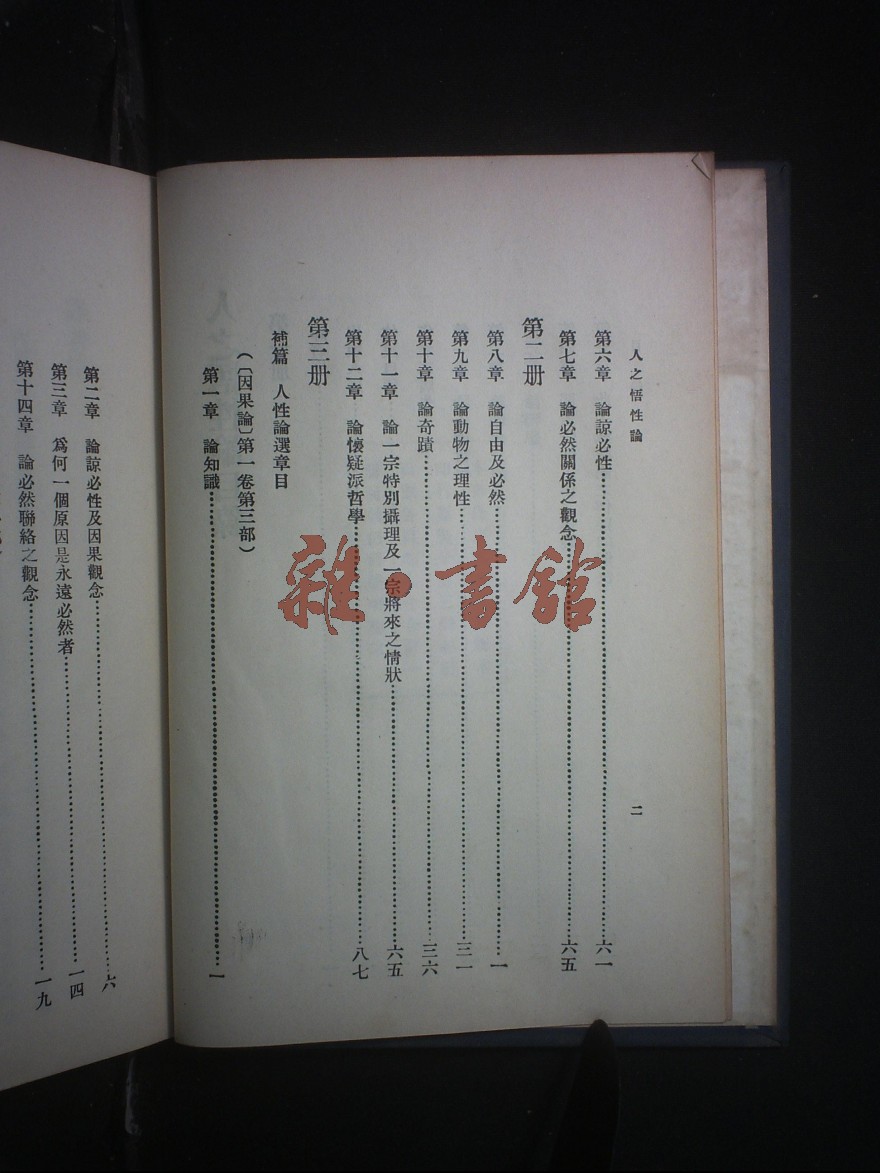 人之悟性論
二
第六章 論諒必性⋯⋯六一
第七章 論必然關係之觀念⋯⋯六五
第二册
第八章 論自由及必然⋯⋯一
第九章 論動物之理性⋯⋯三一
第十章 論奇蹟⋯⋯三六
第十一章 論一宗特別攝理及一宗將來之情狀⋯⋯六五
第十二章 論懷疑派哲學⋯⋯八七
第三册
補篇 人性論選章目
(〔因果論〕第一卷第三部)
第一章 論知識⋯⋯一
第二章 論諒必性及因果觀念⋯⋯六
第三章 爲何一個原因是永遠必然者⋯⋯一四
第十四章 論必然聯絡之觀念⋯⋯一九
雜·書館